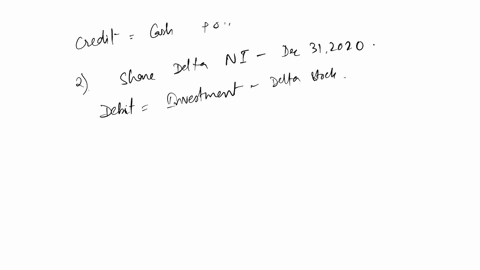 Credit = Cash
2) Share Delta NI - Dec 31, 2020.
Debit = Investment - Delta Stock.